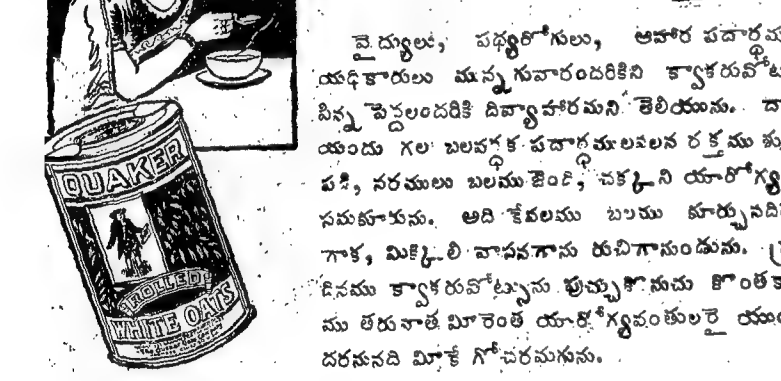 QUAKER
ROLLED
WHITE OATS
వైద్యులు, పథ్యరోగులు, ఆహార పదార్థమ
యధికారులు మున్నగువారందరికిని క్వాకరువోట
పిన్న పెద్దలందరికి దివ్యాహారమని తెలియును. దా
యందు గల బలవర్ధక పదార్థములవలన రక్తము శు
పడి, నరములు బలముజెంది, చక్కని యారోగ్య
సమకూరును. అది కేవలము బలము కూర్చునది
గాక, మిక్కిలి వాసనగాను రుచిగానుండును. ప్ర
దినము క్వాకరువోట్సును పుచ్చుకొనుచు కొంతకా
ము తరువాత మీరెంత యారోగ్యవంతులై యుం
దరనునది మీకే గోచరమగును.